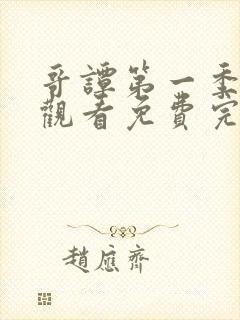 哥譚第一季
觀看免費完
趙應齊